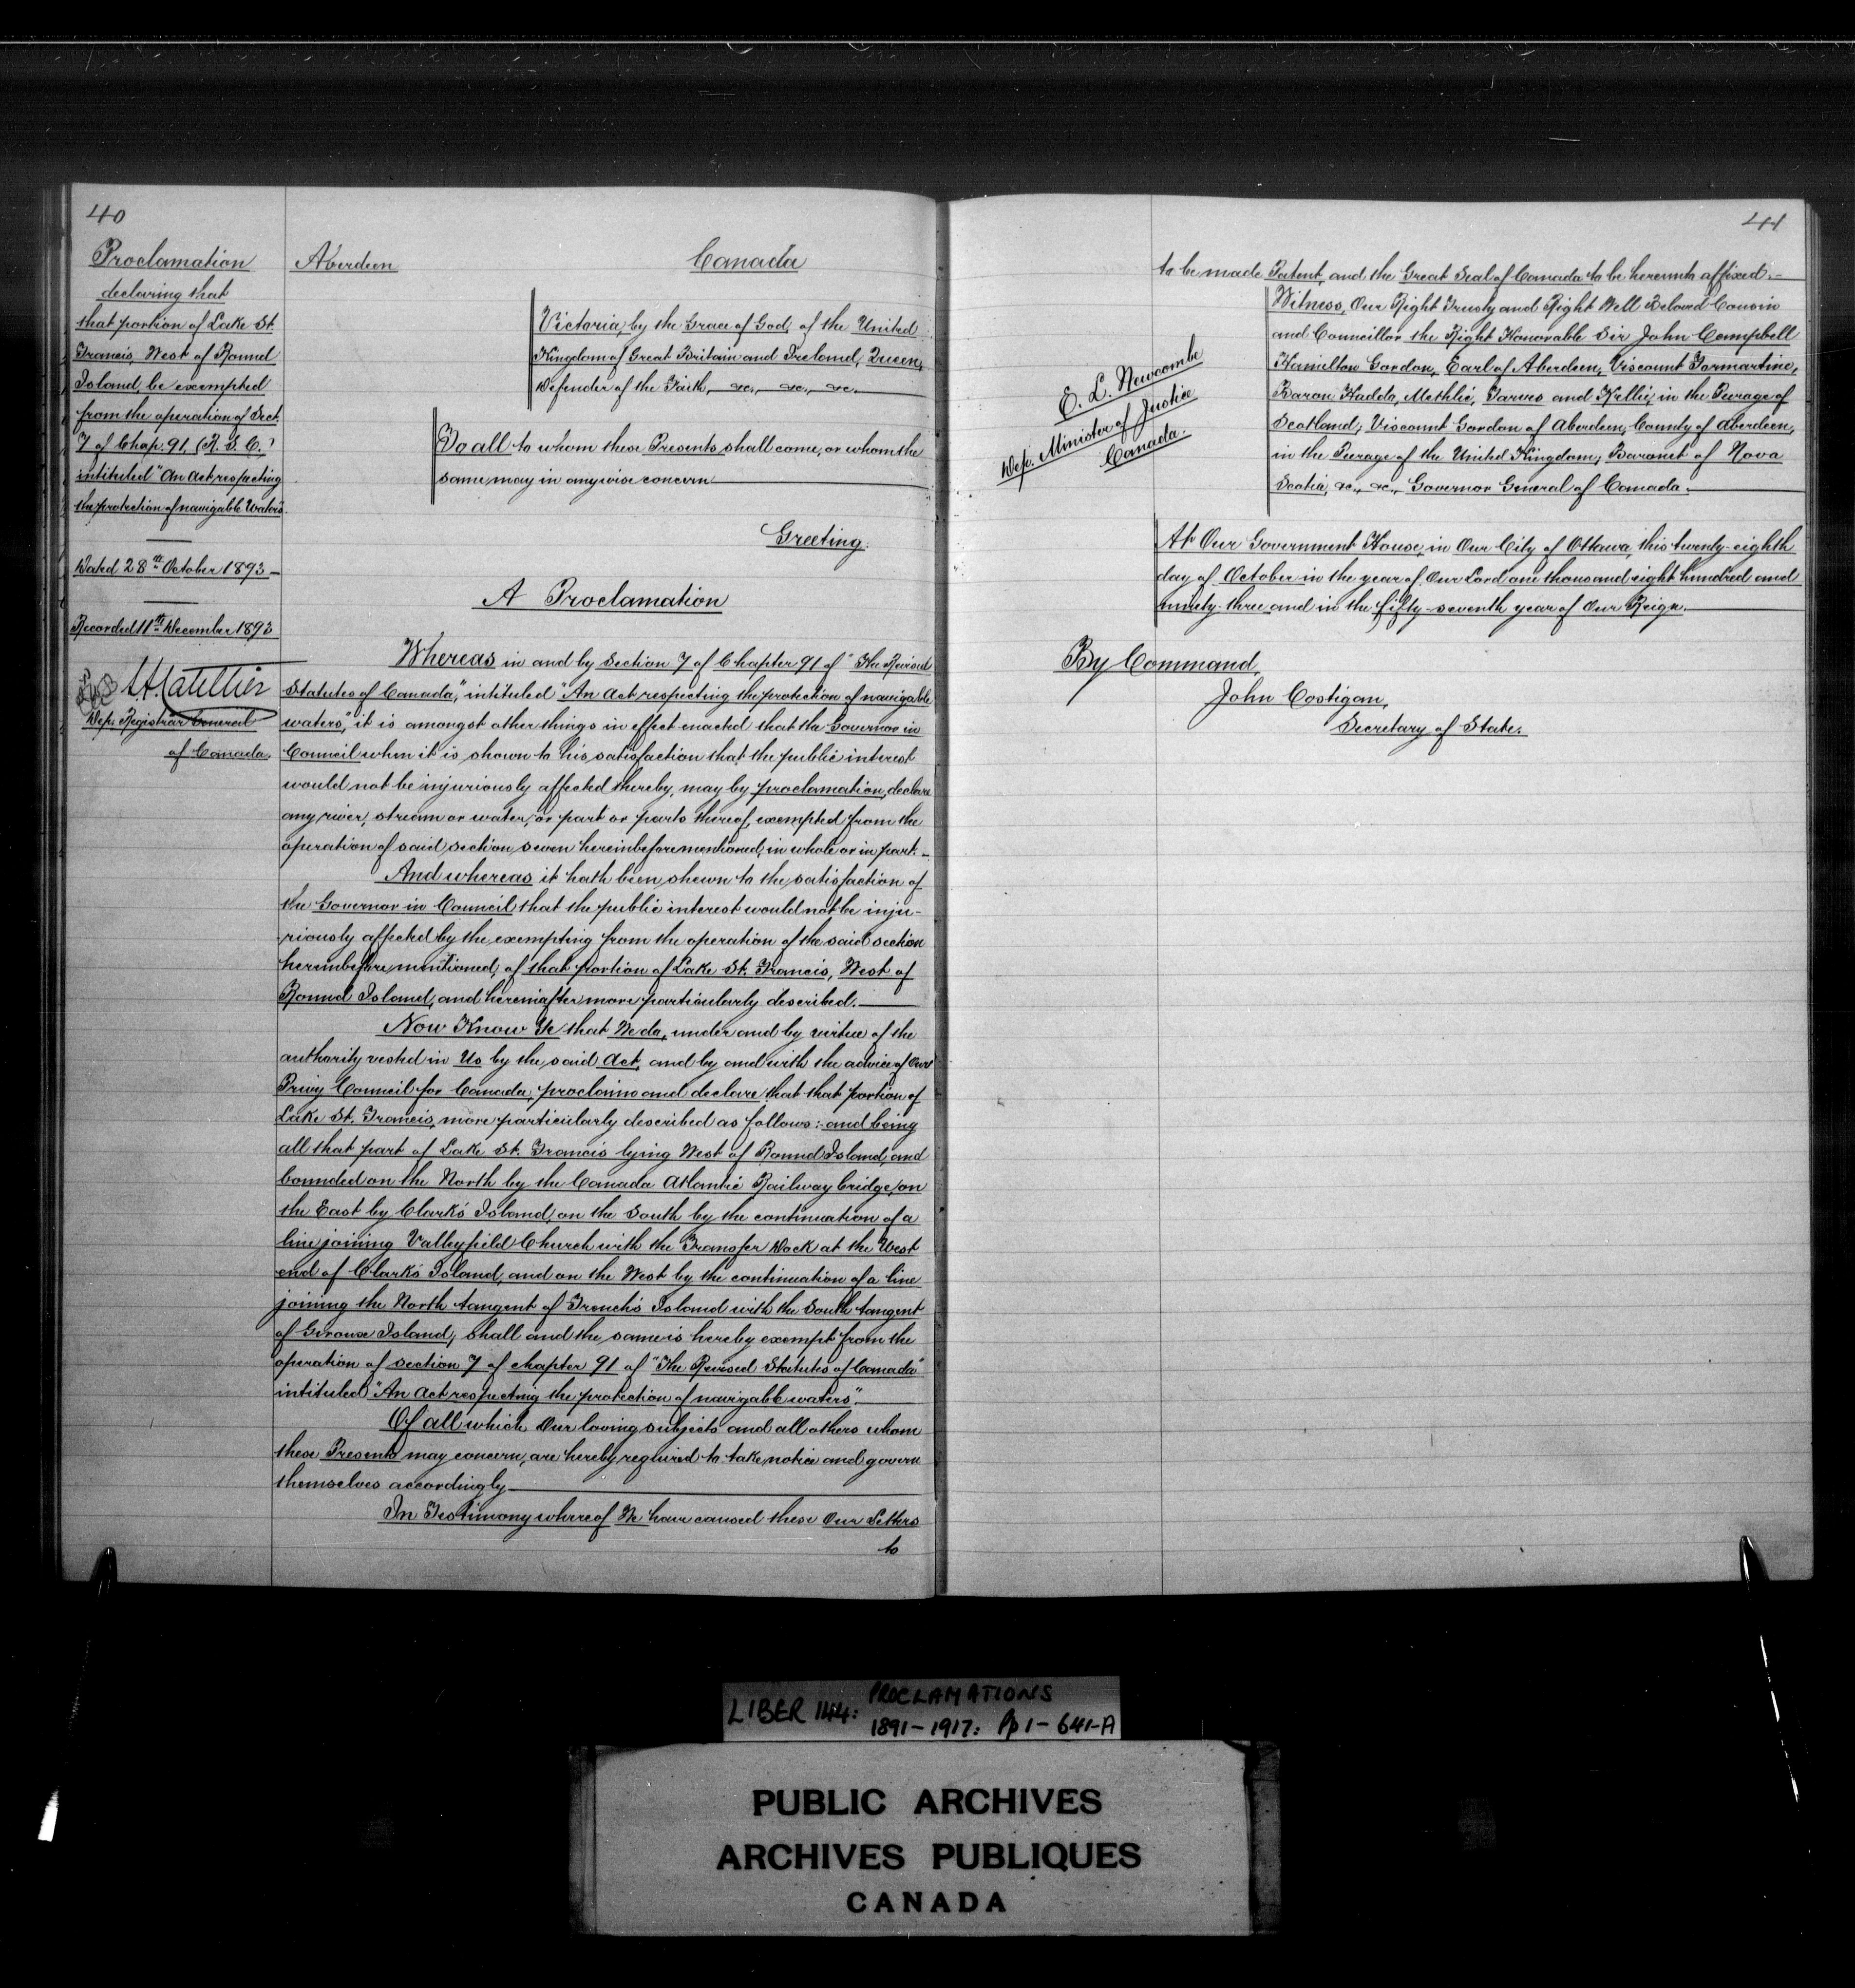 40
Proclamation
declaring that
that portion of Lake St.
Francis, West of Round
Island, be exempted
from the operation of Sect.
7 of Chap. 91, (R. S. C.)
intituled "An Act respecting
the protection of navigable Waters"
Dated 28th October 1893
Recorded 11th December 1893
Dep. Registrar General
of Canada.
Aberdeen
Canada
Victoria, by the Grace of God, of the United
Kingdom of Great Britain and Ireland, Queen,
Defender of the Faith, &c., &c., &c.
To all to whom these Presents shall come, or whom the
same may in anywise concern
Greeting:
A Proclamation
Whereas in and by Section 7 of Chapter 91 of "The Revised
Statutes of Canada," intituled "An Act respecting the protection of navigable
waters," it is amongst other things in effect enacted that the Governor in
Council when it is shown to his satisfaction that the public interest
would not be injuriously affected thereby, may by proclamation, declare
any river, stream or water, or part or parts thereof, exempted from the
operation of said section seven hereinbefore mentioned, in whole or in part.
And whereas it hath been shewn to the satisfaction of
the Governor in Council that the public interest would not be inju-
riously affected by the exempting from the operation of the said section
hereinbefore mentioned, of that portion of Lake St. Francis, West of
Round Island, and hereinafter more particularly described.
Now Know Ye that We do, under and by virtue of the
authority vested in Us by the said Act, and by and with the advice of Our
Privy Council for Canada, proclaim and declare that that portion of
Lake St. Francis, more particularly described as follows: and being
all that part of Lake St. Francis lying West of Round Island, and
bounded on the North by the Canada Atlantic Railway bridge, on
the East by Clark's Island, on the South by the continuation of a
line joining Valleyfield Church with the Transfer Dock at the West
end of Clark's Island, and on the West by the continuation of a line
joining the North tangent of French's Island with the South tangent
of Giroux Island, shall and the same is hereby exempt from the
operation of section 7 of chapter 91 of "The Revised Statutes of Canada"
intituled "An Act respecting the protection of navigable waters".
Of all which Our loving subjects and all others whom
these Presents may concern, are hereby required to take notice and govern
themselves accordingly
In Testimony whereof We have caused these Our Letters
to
41
to be made Patent, and the Great Seal of Canada to be hereunto affixed.
Witness, Our Right Trusty and Right Well Beloved Cousin
and Councillor the Right Honorable Sir John Campbell
Hamilton Gordon, Earl of Aberdeen, Viscount Formartine,
Baron Haddo, Methlic, Tarves and Kellie, in the Peerage of
Scotland; Viscount Gordon of Aberdeen, County of Aberdeen,
in the Peerage of the United Kingdom; Baronet of Nova
Scotia, &c., &c., Governor General of Canada.
E. L. Newcombe
Dep. Minister of Justice
Canada.
At Our Government House, in Our City of Ottawa, this twenty-eighth
day of October in the year of Our Lord one thousand eight hundred and
ninety-three and in the fifty-seventh year of Our Reign.
By Command,
John Costigan,
Secretary of State.
LIBER 144: PROCLAMATIONS
1891-1917: Pp 1-641-A
PUBLIC ARCHIVES
ARCHIVES PUBLIQUES
CANADA